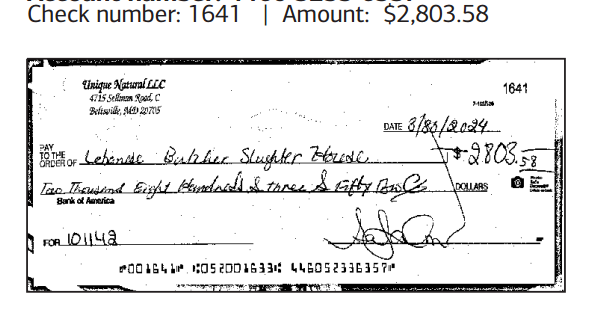 Check number: 1641 | Amount: $2,803.58
Unique Natural LLC
4715 Sellman Road, C
Beltsville, MD 20705
1641
DATE 3/30/2024
PAY TO THE ORDER OF Lebanese Butcher Slughter House $ 2803.58
Two Thousand Eight Hundred & three & fifty DOLLARS
Bank of America
FOR 101142
⑈001641⑈ ⑆052001633⑆ 446052336357⑈